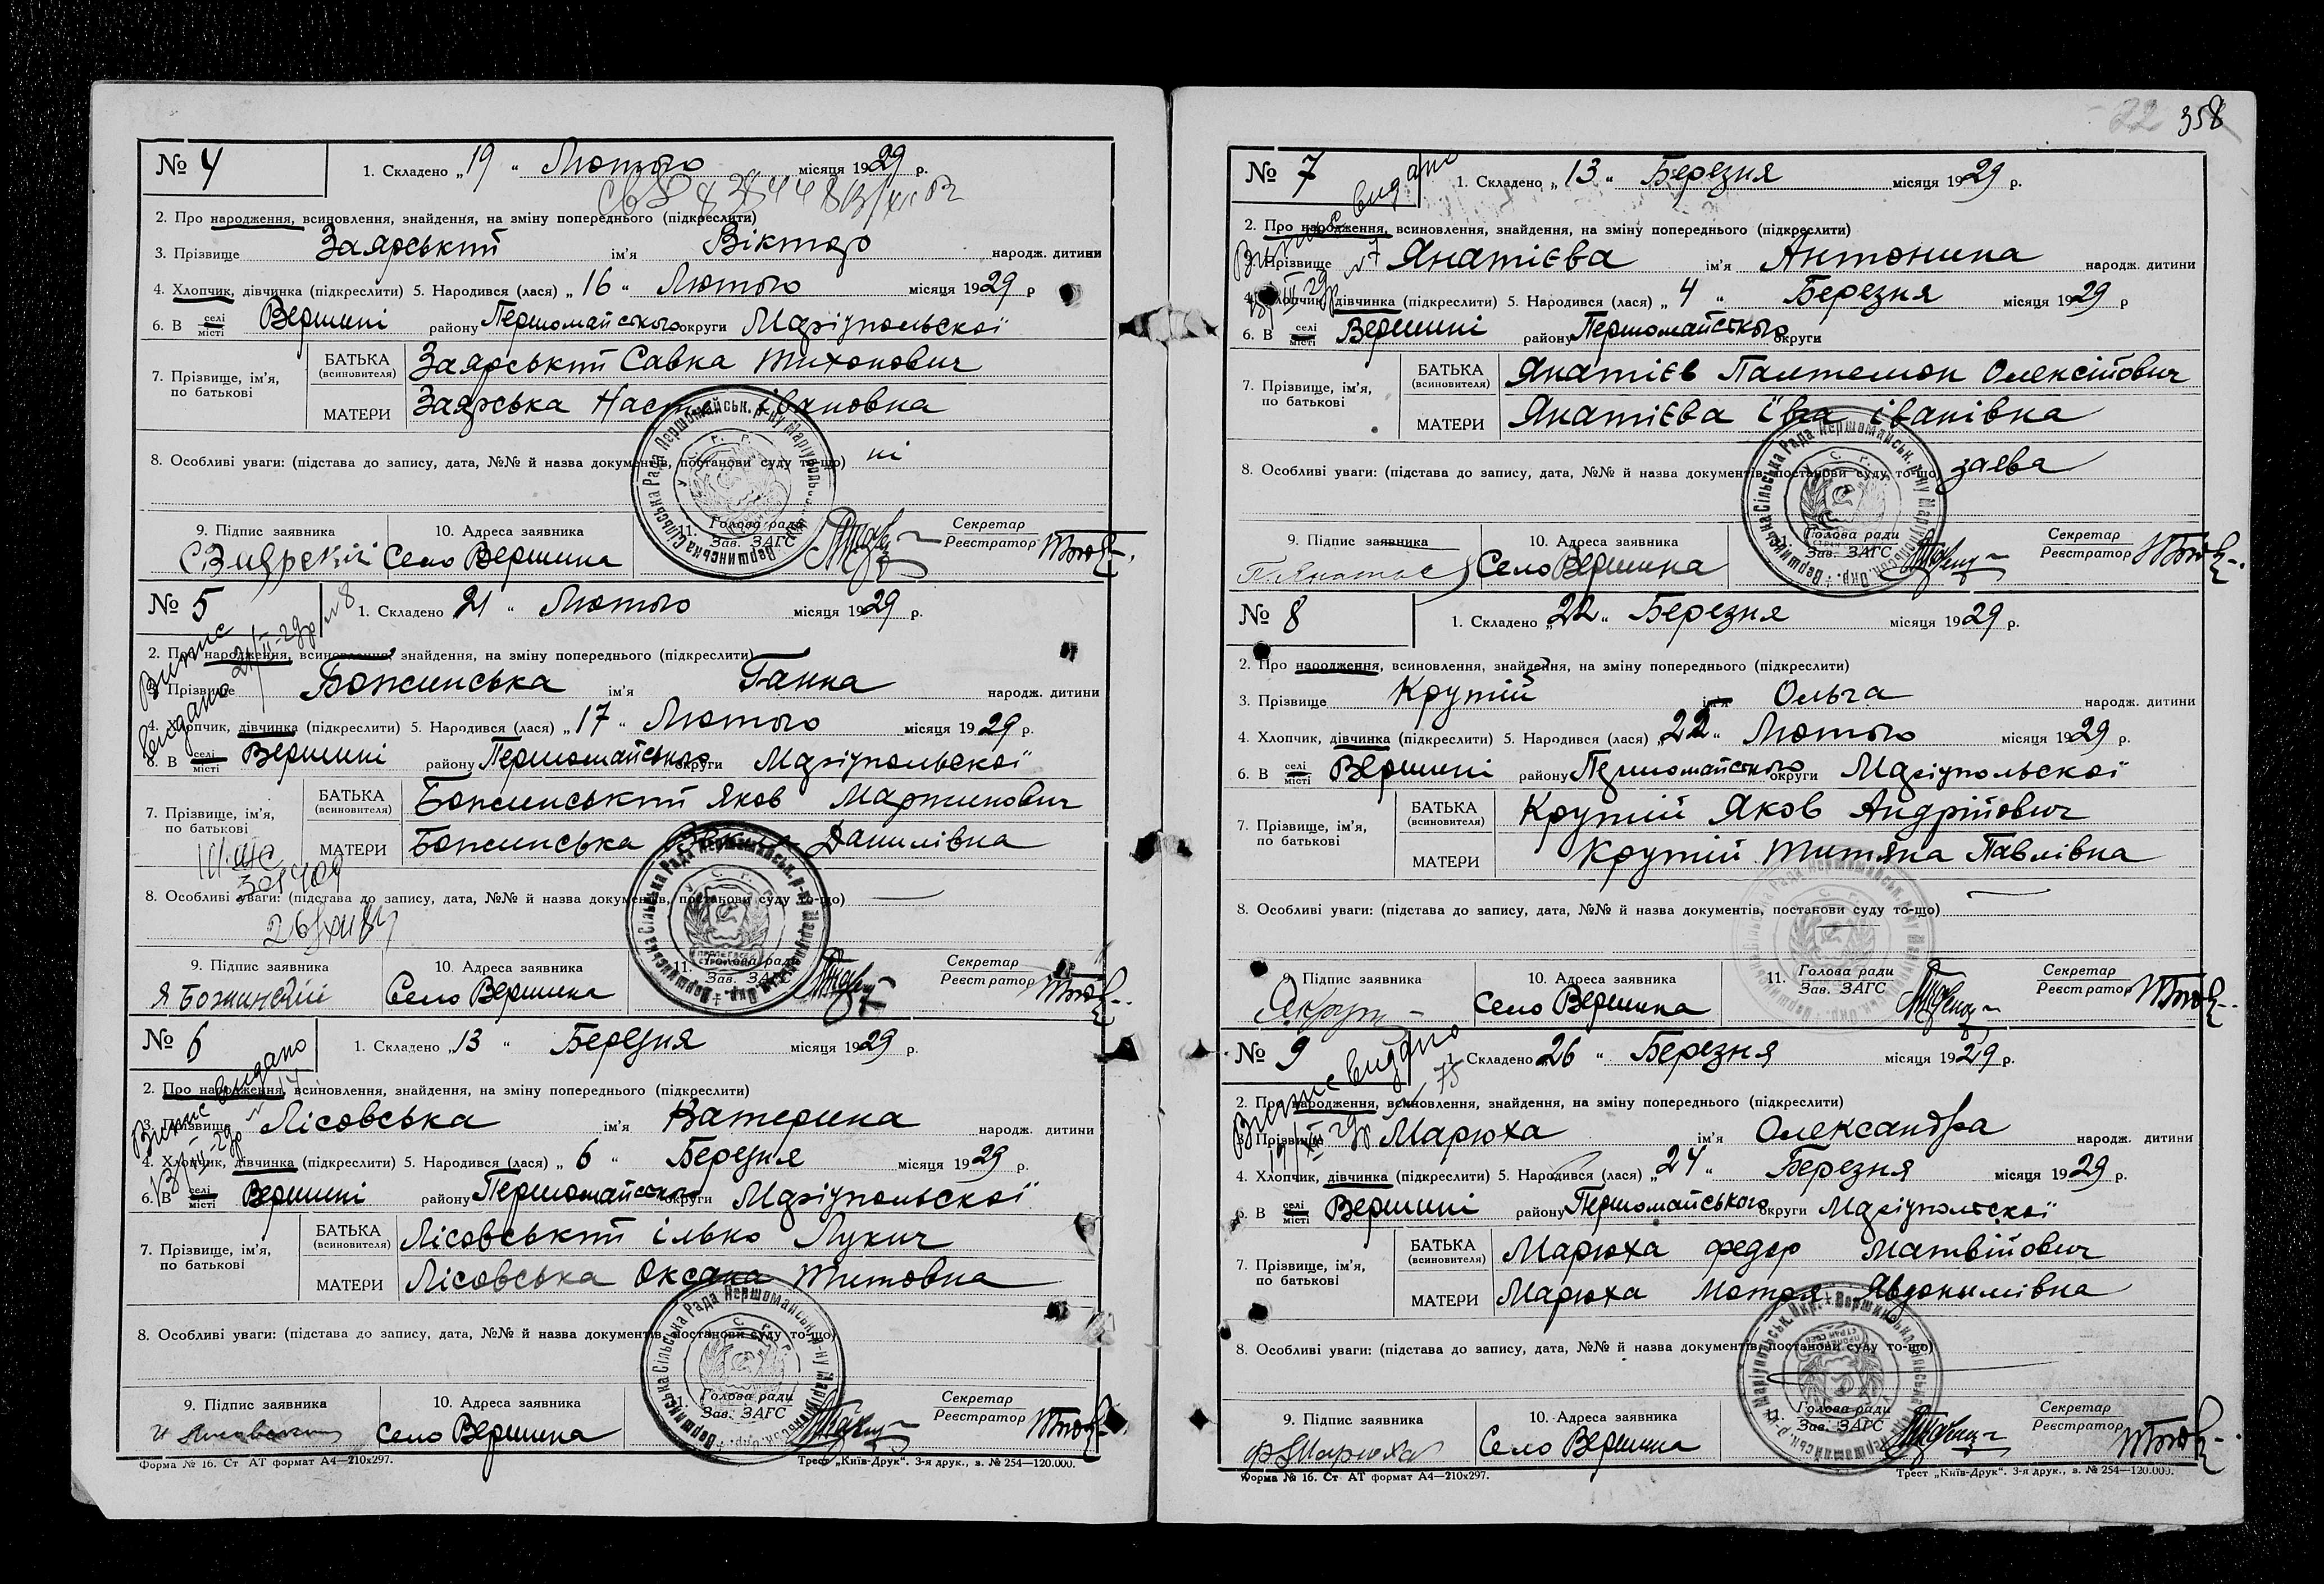 358
№ 4
1. Складено „19 “ Лютого місяця 1929 р.
2. Про народження, всиновлення, знайдення, на зміну попереднього (підкреслити)
3. Прізвище Заярський ім'я Віктор народж. дитини
4. Хлопчик, дівчинка (підкреслити) 5. Народився (лася) „16 “ Лютого місяця 1929 р
6. В селі місті Вершині району Першомайського округи Маріупольської
7. Прізвище, ім'я, по батькові
БАТЬКА (всиновителя) Заярський Савка Тихонович
МАТЕРИ Заярська Івановна
8. Особливі уваги: (підстава до запису, дата, №№ й назва документів, постанови суду то-що) ні
9. Підпис заявника 10. Адреса заявника 11. Голова ради Зав. ЗАГС Секретар Реєстратор
Село Вершина
№ 5
1. Складено 21 “ Лютого місяця 1929 р.
Витяг видано
2. Про народження, всиновлення, знайдення, на зміну попереднього (підкреслити)
3. Прізвище Божинська ім'я Ганна народж. дитини
4. Хлопчик, дівчинка (підкреслити) 5. Народився (лася) „17 “ Лютого місяця 1929 р.
6. В селі місті Вершині району Першомайського округи Маріупольської
7. Прізвище, ім'я, по батькові
БАТЬКА (всиновителя) Божинський Яков Мартинович
МАТЕРИ Божинська Данилівна
8. Особливі уваги: (підстава до запису, дата, №№ й назва документів, постанови суду то-що)
9. Підпис заявника 10. Адреса заявника 11. Голова ради Зав. ЗАГС Секретар Реєстратор
Я Божинский Село Вершина
№ 6
1. Складено „13 “ Березня місяця 1929 р.
2. Про народження, всиновлення, знайдення, на зміну попереднього (підкреслити)
3. Прізвище Лісовська ім'я Катерина народж. дитини
4. Хлопчик, дівчинка (підкреслити) 5. Народився (лася) „ 6 “ Березня місяця 1929 р.
6. В селі місті Вершині району Першомайського округи Маріупольської
7. Прізвище, ім'я, по батькові
БАТЬКА (всиновителя) Лісовський Ілько Лукич
МАТЕРИ Лісовська Оксана Титовна
8. Особливі уваги: (підстава до запису, дата, №№ й назва документів, постанови суду то-що)
9. Підпис заявника 10. Адреса заявника 11. Голова ради Зав. ЗАГС Секретар Реєстратор
Село Вершина
Форма № 16. Ст АТ формат А4—210х297. Трест „Київ-Друк“. 3-я друк., з. № 254—120.000.
№ 7
1. Складено „13 “ Березня місяця 1929 р.
2. Про народження, всиновлення, знайдення, на зміну попереднього (підкреслити)
3. Прізвище Янатієва ім'я Антонина народж. дитини
4. Хлопчик, дівчинка (підкреслити) 5. Народився (лася) „ 4 “ Березня місяця 1929 р
6. В селі місті Вершині району Першомайського округи
7. Прізвище, ім'я, по батькові
БАТЬКА (всиновителя) Янатієв Палтемон Олексійович
МАТЕРИ Янатієва Івга Іванівна
8. Особливі уваги: (підстава до запису, дата, №№ й назва документів, постанови суду то-що) заява
9. Підпис заявника 10. Адреса заявника 11. Голова ради Зав. ЗАГС Секретар Реєстратор
Село Вершина
№ 8
1. Складено „22 “ Березня місяця 1929 р.
2. Про народження, всиновлення, знайдення, на зміну попереднього (підкреслити)
3. Прізвище Крутій ім'я Ольга народж. дитини
4. Хлопчик, дівчинка (підкреслити) 5. Народився (лася) „22 “ Лютого місяця 1929 р.
6. В селі місті Вершині району Першомайського округи Маріупольської
7. Прізвище, ім'я, по батькові
БАТЬКА (всиновителя) Крутій Яков Андрійович
МАТЕРИ Крутій Титяна Павлівна
8. Особливі уваги: (підстава до запису, дата, №№ й назва документів, постанови суду то-що)
9. Підпис заявника 10. Адреса заявника 11. Голова ради Зав. ЗАГС Секретар Реєстратор
Село Вершина
№ 9
1. Складено 26 “ Березня місяця 1929 р.
2. Про народження, всиновлення, знайдення, на зміну попереднього (підкреслити)
3. Прізвище Марюха ім'я Олександра народж. дитини
4. Хлопчик, дівчинка (підкреслити) 5. Народився (лася) „24 “ Березня місяця 1929 р.
6. В селі місті Вершині району Першомайського округи Маріупольської
7. Прізвище, ім'я, по батькові
БАТЬКА (всиновителя) Марюха Федор Матвійович
МАТЕРИ Марюха Мотря Явдокимівна
8. Особливі уваги: (підстава до запису, дата, №№ й назва документів, постанови суду то-що)
9. Підпис заявника 10. Адреса заявника 11. Голова ради Зав. ЗАГС Секретар Реєстратор
Ф Марюха Село Вершина
Форма № 16. Ст АТ формат А4—210х297. Трест „Київ-Друк“. 3-я друк., з. № 254—120.000.